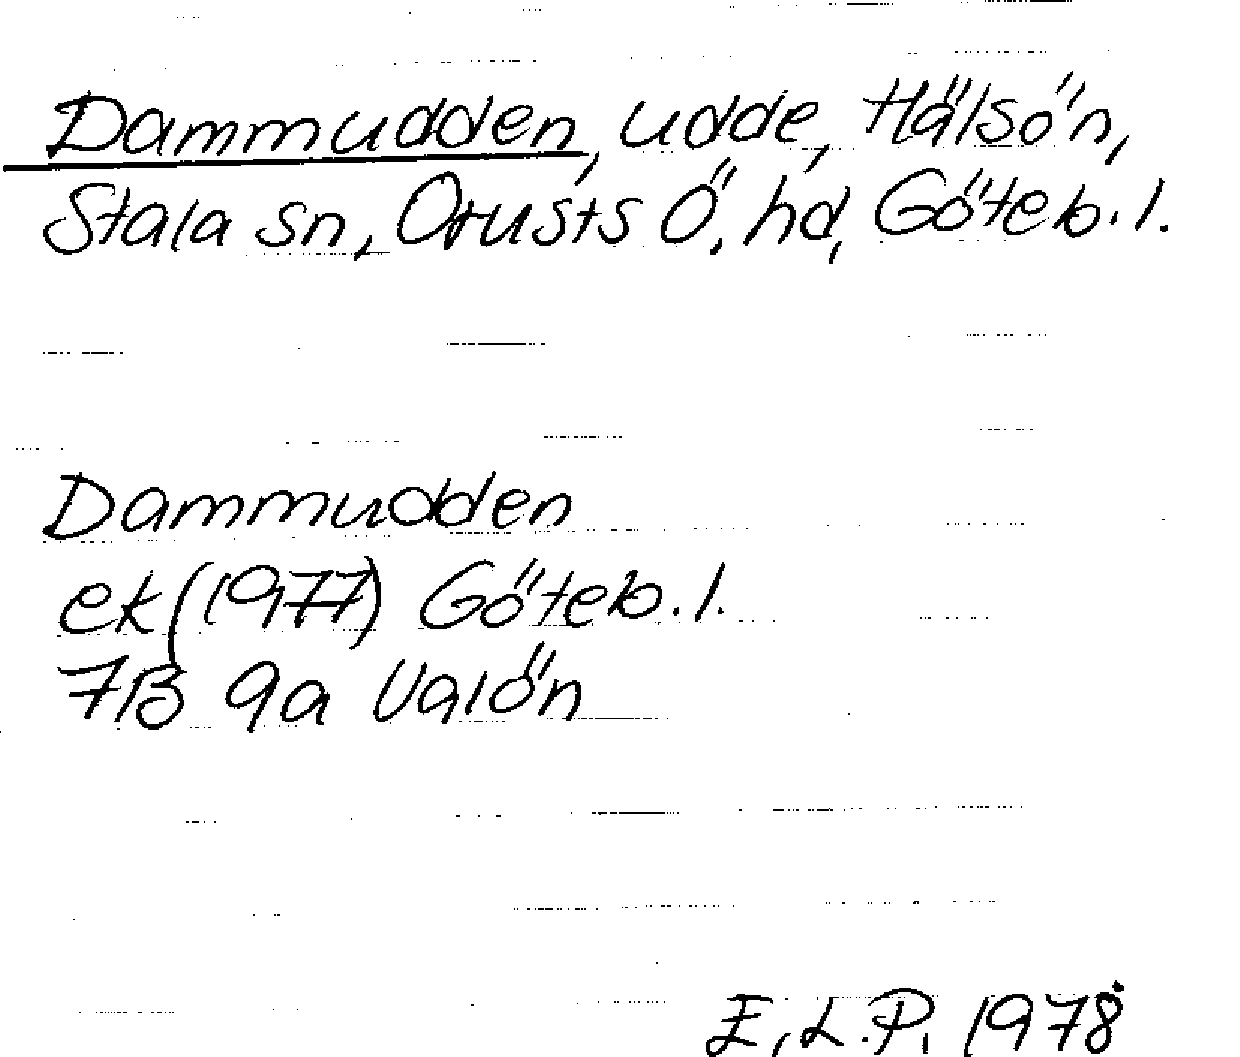 Dammudden, udde, Hälsön,
Stala sn, Orusts Ö, hd, Göteb. l.
Dammudden
ek (1977) Göteb. l.
7B 9a Valön
E. L. P. 1978